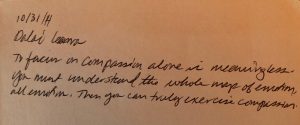 10/31/14
Dalai Lama
To focus on compassion alone is meaningless.
You must understand the whole map of emotion,
all emotion. Then you can truly exercise compassion.